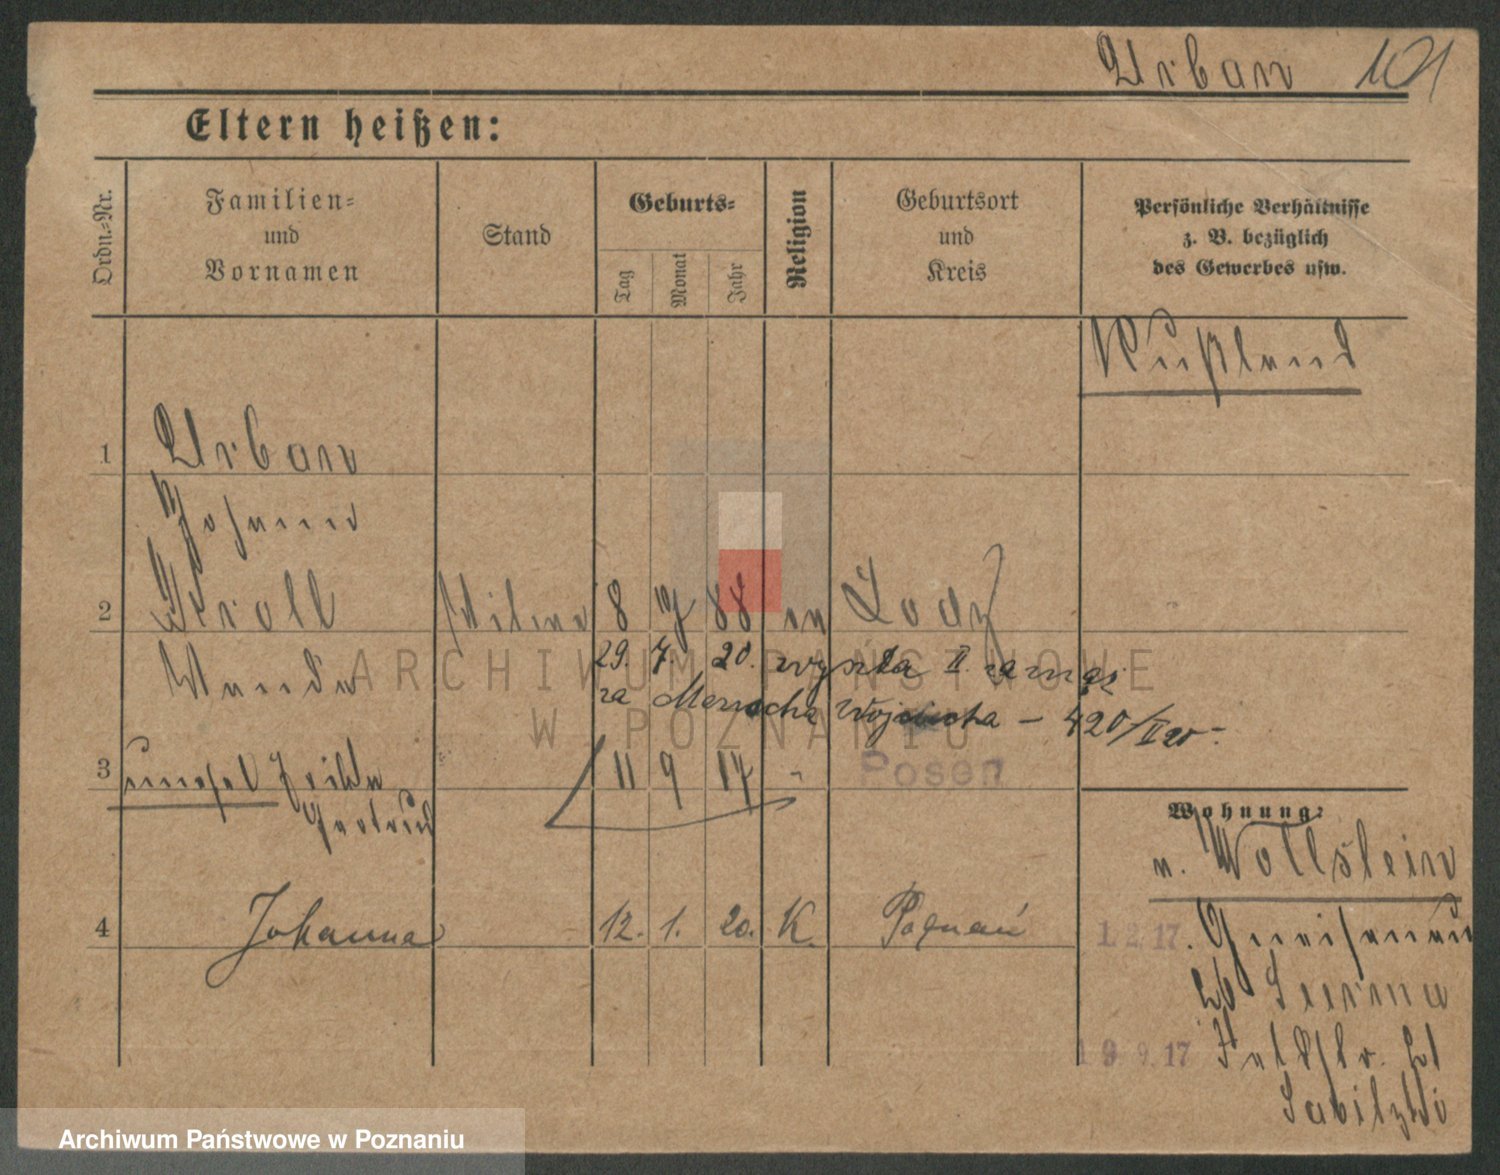 Urban 101
Eltern heißen:
Ordn.-Nr.
Familien- und Vornamen
Stand
Geburts-
Tag
Monat
Jahr
Religion
Geburtsort und Kreis
Persönliche Verhältnisse z. B. bezüglich des Gewerbes usw.
Rußland
1 Urban
Johann
2 Kroll 8 88 Lodz
Wanda
29. 7. 20. wyszła II. za mąż
za Wojciecha – 420/II 20
3 unehel 11 9 17 Posen
Gertrud
Wohnung:
n. Wollstein
4 Johanna 12. 1. 20. K. Poznań
1 2. 17. Gneisenau
26
19. 9. 17 Feldstr. 21
ARCHIWUM PAŃSTWOWE
W POZNANIU
Archiwum Państwowe w Poznaniu